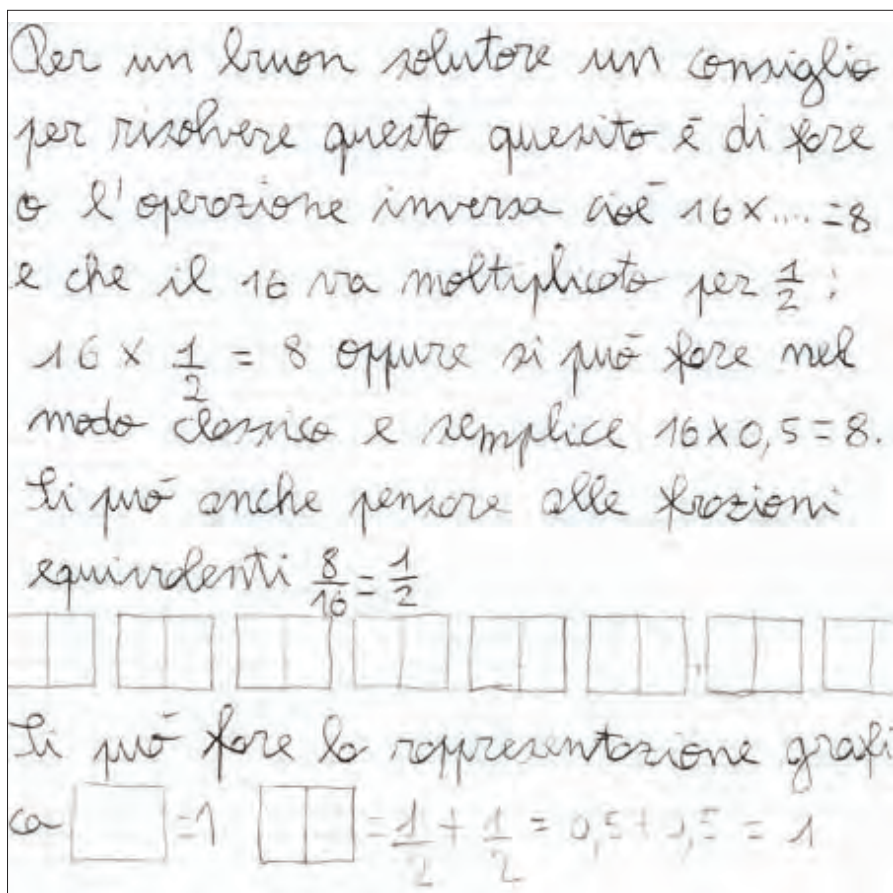 Per un buon solutore un consiglio
per risolvere questo quesito è di fare
o l'operazione inversa cioè 16 x .... = 8
e che il 16 va moltiplicato per 1/2 :
16 x 1/2 = 8 oppure si può fare nel
modo classico e semplice 16 x 0,5 = 8.
Si può anche pensare alle frazioni
equivalenti 8/16 = 1/2
Si può fare la rappresentazione grafi
ca = 1 = 1/2 + 1/2 = 0,5 + 0,5 = 1